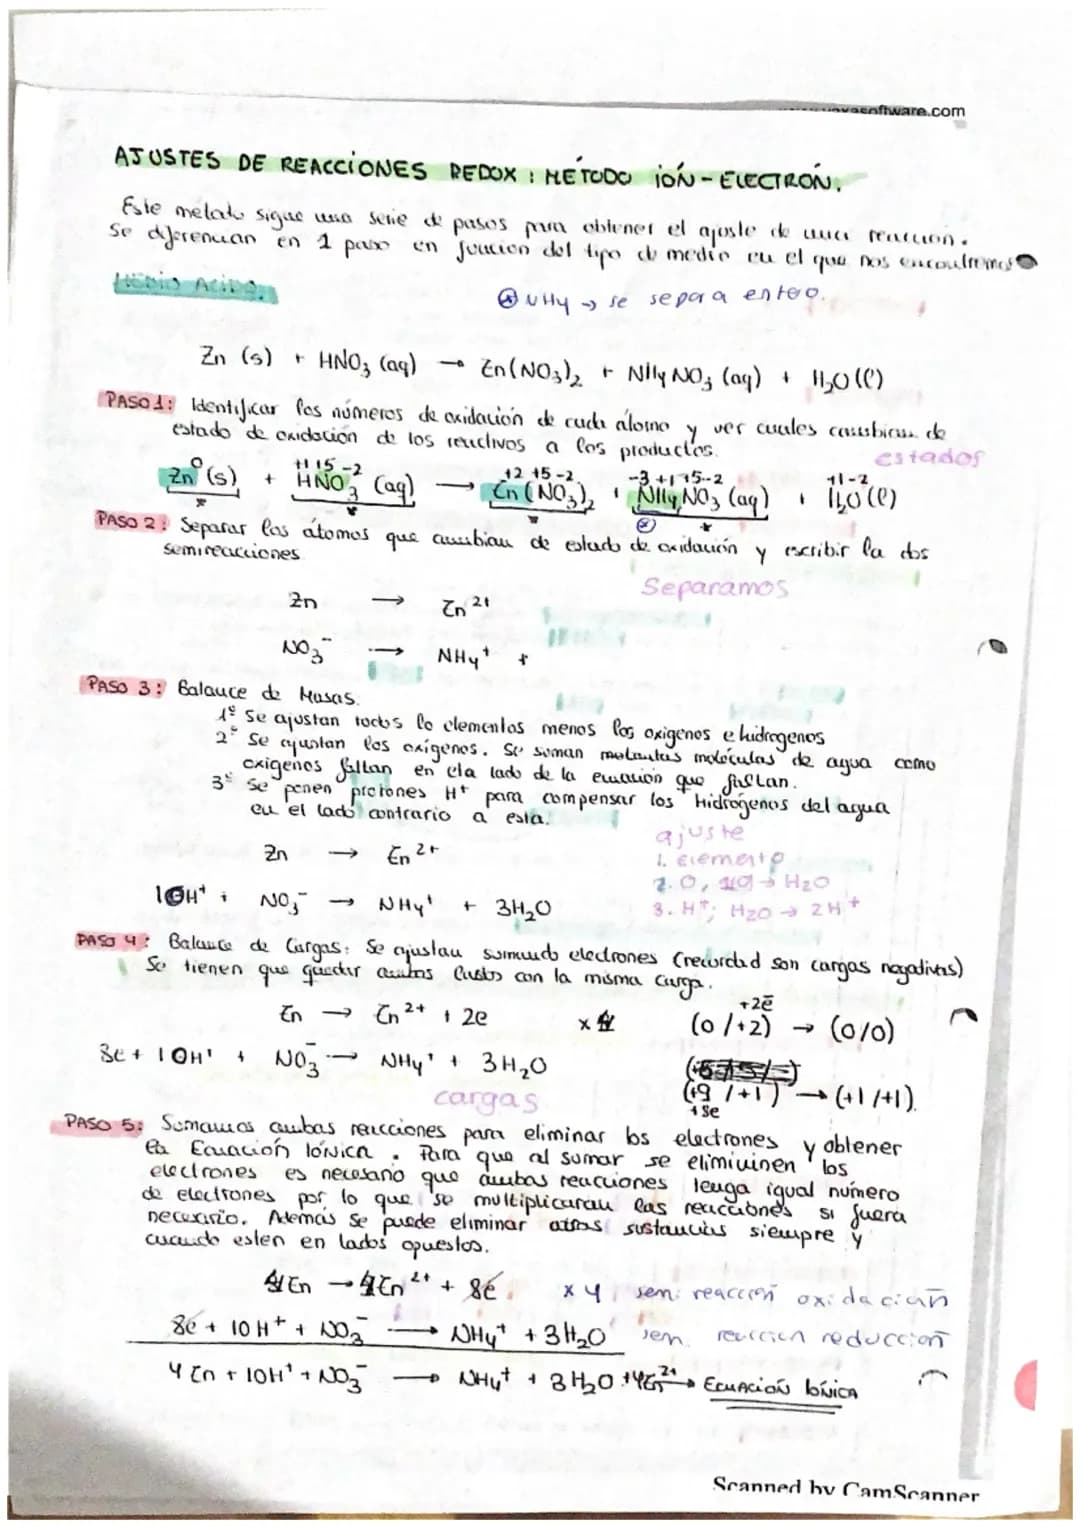 vayasoftware.com
AJUSTES DE REACCIONES REDOX : METODO IÓN-ELECTRÓN.
Este método sigue una serie de pasos para obtener el ajuste de una reacción.
Se diferencian en 1 paso en función del tipo de medio en el que nos encontremos
MEDIO ACIDO.
⊗ NH4 → se separa entero.
Zn (s) + HNO3 (aq) → Zn(NO3)2 + NH4NO3 (aq) + H2O(l)
PASO 1: Identificar los números de oxidación de cada átomo y ver cuales cambian de
estado de oxidación de los reactivos a los productos.
estados
0 +1+5-2 +2 +5-2 -3+1+5-2 +1-2
Zn (s) + HNO3 (aq) → Zn(NO3)2 + NH4NO3 (aq) + H2O(l)
PASO 2: Separar los átomos que cambian de estado de oxidación y escribir la dos
semireacciones.
Separamos
Zn → Zn2+
NO3- → NH4+ +
PASO 3: Balance de Masas.
1º Se ajustan todos lo elementos menos los oxigenos e hidrogenos
2º Se ajustan los oxígenos. Se suman moléculas de agua como
oxigenos faltan en el lado de la ecuación que faltan.
3º Se ponen protones H+ para compensar los Hidrógenos del agua
en el lado contrario a esta.
ajuste
Zn → Zn2+
1. elemento
2. O, → H2O
10H+ + NO3- → NH4+ + 3H2O
3. H+; H2O → 2H+
PASO 4: Balance de Cargas: Se ajustan sumando electrones (recordad son cargas negativas)
Se tienen que quedar ambos lados con la misma carga.
+2e-
Zn → Zn2+ + 2e x 4 (0/+2) → (0/0)
8e + 10H+ + NO3- → NH4+ + 3H2O
(+9/+1) → (+1/+1).
+8e
cargas
PASO 5: Sumamos ambas reacciones para eliminar los electrones y obtener
la Ecuación Iónica. Para que al sumar se elimininen los
electrones es necesario que ambas reacciones tenga igual número
de electrones por lo que se multiplicaran las reacciones si fuera
necesario. Además se puede eliminar otras sustancias siempre y
cuando esten en lados opuestos.
4Zn → 4Zn2+ + 8e- x 4 semireacción oxidación
8e- + 10H+ + NO3- → NH4+ + 3H2O sem. reaccion reducción
4Zn + 10H+ + NO3- → NH4+ + 3H2O + 4Zn2+ → ECUACIÓN IÓNICA
Scanned by CamScanner